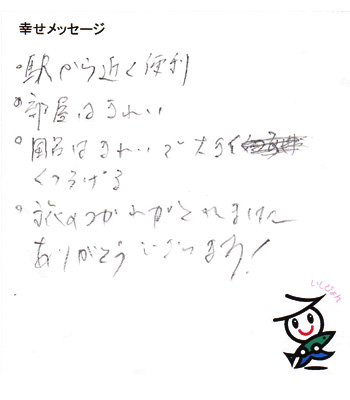 幸せメッセージ
○駅から近く便利
○部屋はきれい
○風呂はきれいで大きく
くつろげる
○旅のつかれがとれました
ありがとうございます!
いしぴょん